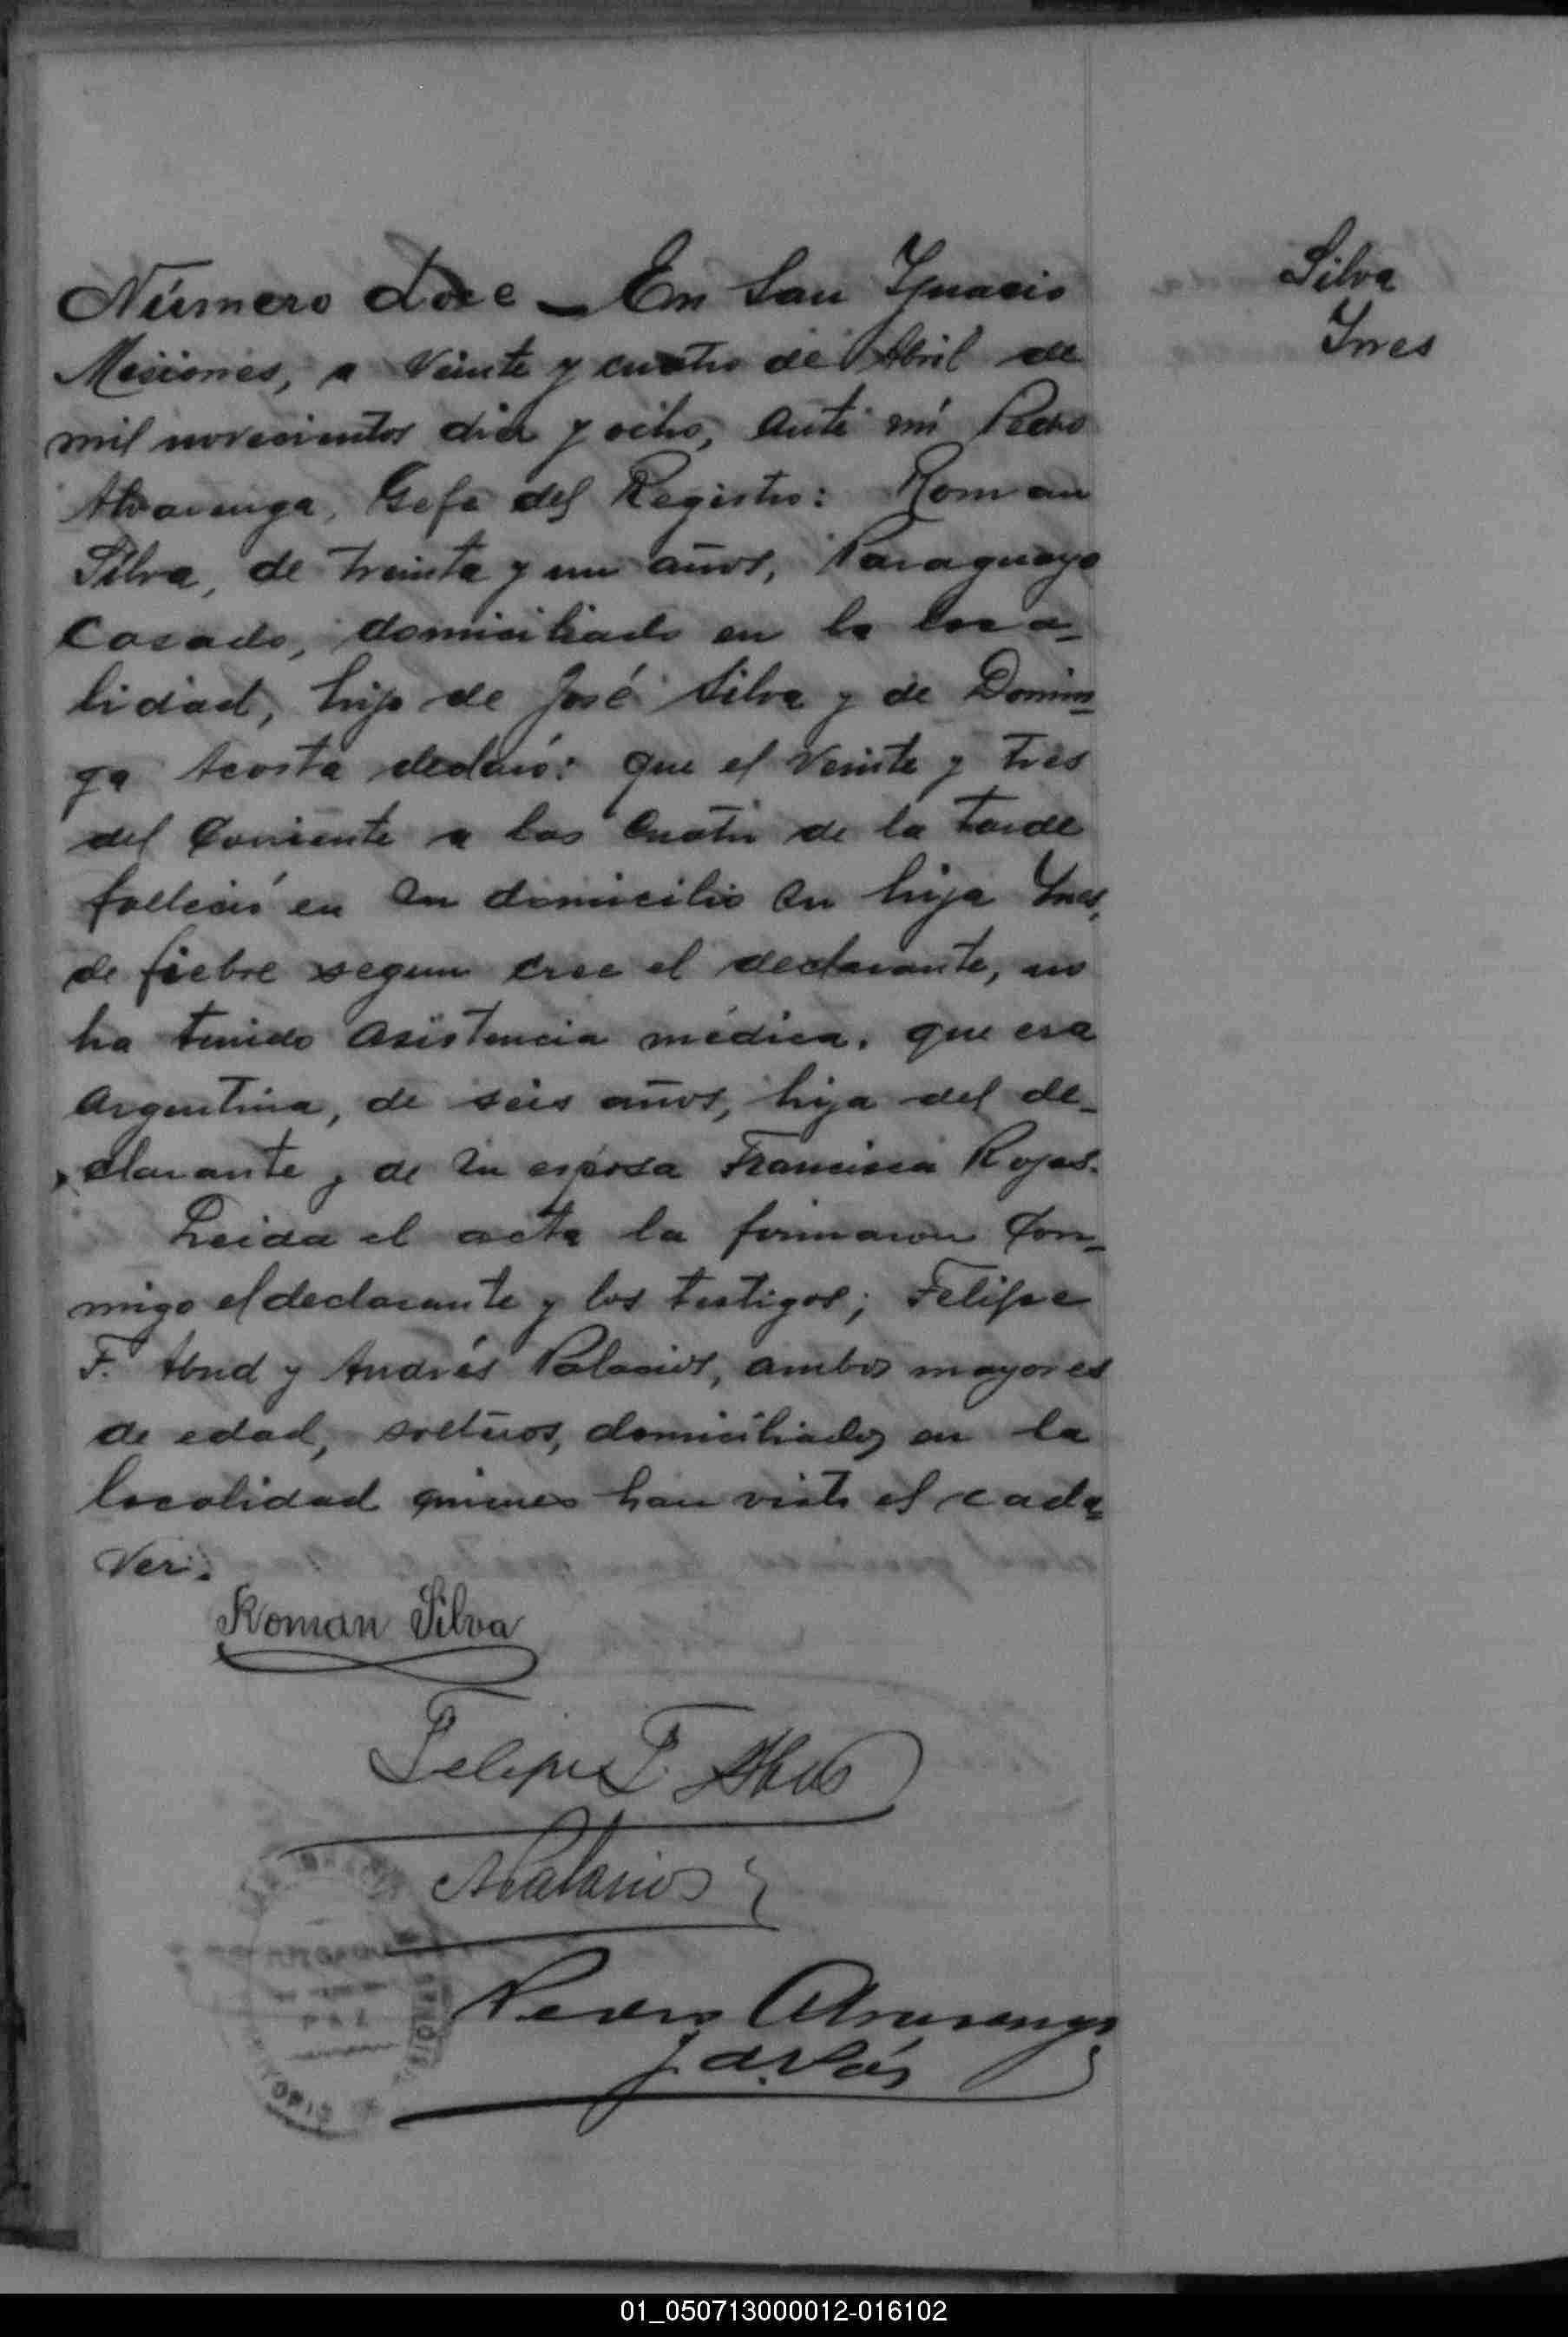 Número doce _ En San Ygnacio
Misiones, a Veinte y cuatro de Abril de
mil novecientos diez y ocho, ante mí Pedro
Alvarenga, Gefe del Registro: Roman
Silva, de treinta y un años, Paraguayo
Casado, domiciliado en la loca_
lidad, hijo de José Silva y de Domin_
ga Acosta declaró: que el Veinte y tres
del Corriente a las Cuatro de la tarde
falleció en su domicilio su hija Ynes,
de fiebre segun cree el declarante, no
ha tenido asistencia médica, que era
Argentina, de seis años, hija del de_
clarante y de su esposa Francisca Rojas.
Leida el acta la firmaron Con_
migo el declarante y los testigos; Felipe
F. Abud y Andrés Palacios, ambos mayores
de edad, solteros, domiciliados en la
localidad quienes han visto el cada_
Ver.
Silva
Ynes
Roman Silva
Felipe F. Abud
APalacios
Pedro Alvarenga
01_050713000012-016102